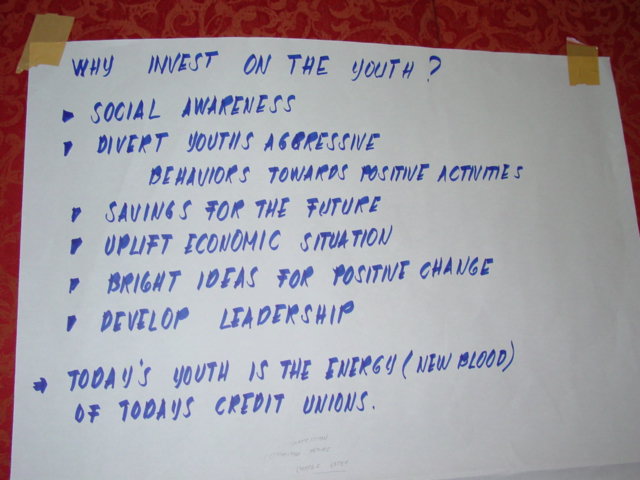 WHY INVEST ON THE YOUTH?
SOCIAL AWARENESS
DIVERT YOUTHS AGGRESSIVE
BEHAVIORS TOWARDS POSITIVE ACTIVITIES
SAVINGS FOR THE FUTURE
UPLIFT ECONOMIC SITUATION
BRIGHT IDEAS FOR POSITIVE CHANGE
DEVELOP LEADERSHIP
TODAY'S YOUTH IS THE ENERGY (NEW BLOOD)
OF TODAYS CREDIT UNIONS.